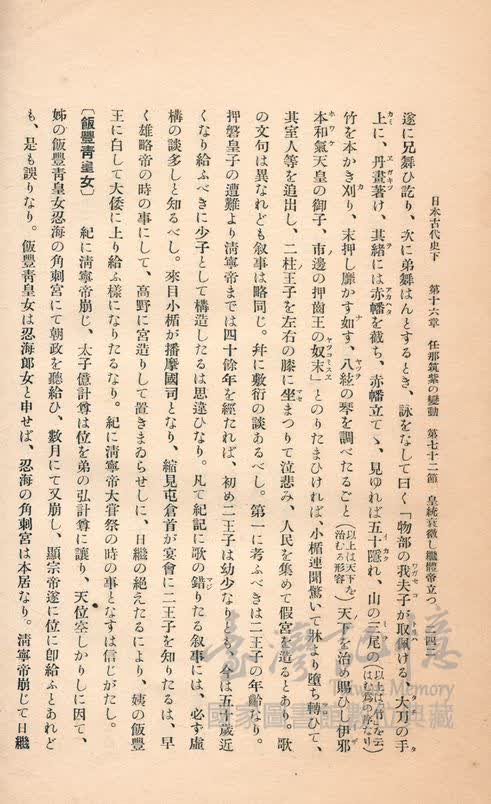 日本古代史下　第十六章　任那筑紫の變動　第七十二節　皇統衰微し繼體帝立つ
遂に兄舞ひ訖り、次に弟舞はんとするとき、詠をなして曰く「物部の我夫子が取佩ける、大刀の手
上に、丹畫著け、其緒には赤幡を截ち、赤幡立てゝ、見ゆれば五十隱れ、山の三尾の
竹を本かき刈り、末押し靡かす如す、八絃の琴を調べたるごと（以上は天下を治むる形容）天下を治め賜ひし伊邪
本和氣天皇の御子、市邊の押齒王の奴末」とのりたまひければ、小楯連聞驚いて牀より墮ち轉ひて、
其室人等を追出し、二柱王子を左右の膝に坐まつりて泣悲み、人民を集めて假宮を造るとあり。歌
の文句は異なれども敘事は略同じ。幷に敷衍の談あるべし。第一に考ふべきは二王子の年齡なり。
押磐皇子の遭難より淸寧帝までは四十餘年を經たれば、初め二王子は幼少なりとも、今は五十歲近
くなり給ふべきに少子として構造したるは思違ひなり。凡て紀記に歌の錯りたる敘事には、必ず虛
構の談多しと知るべし。來目小楯が播磨國司となり、縮見屯倉首が宴會に二王子を知りたるは、早
く雄略帝の時の事にして、高野に宮造りして置きまゐらせしに、日繼の絕えたるにより、姨の飯豐
王に白して大倭に上り給ふ樣になりたるなり。紀に淸寧帝大甞祭の時の事となすは信じがたし。
〔飯豐靑皇女〕　紀に淸寧帝崩じ、太子億計尊は位を弟の弘計尊に讓り、天位空しかりしに因て、
姊の飯豐靑皇女忍海の角刺宮にて朝政を聽給ひ、數月にて又崩し、顯宗帝遂に位に卽給ふとあれど
も、是も誤りなり。飯豐靑皇女は忍海郎女と申せば、忍海の角刺宮は本居なり。淸寧帝崩じて日繼
臺灣記憶
Taiwan Memory
國家圖書館數位典藏